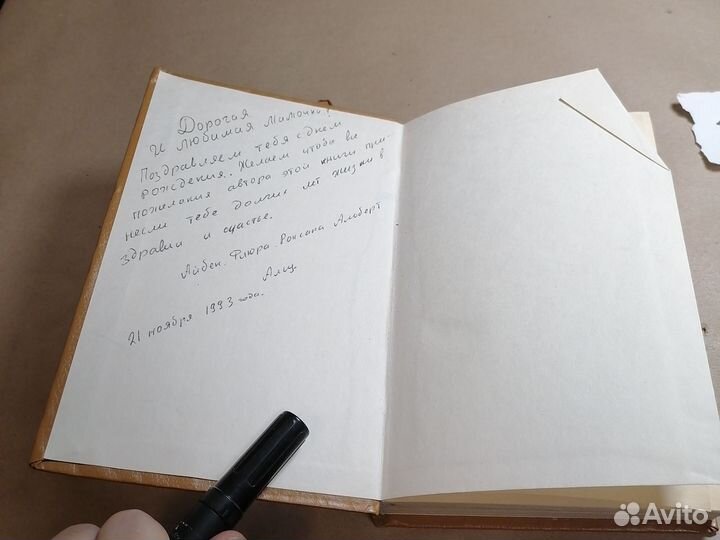 Дорогая
и любимая Мамочка!
Поздравляем тебя с днем
рождения. Желаем чтобы все
пожелания автора этой книги при-
несли тебе долгих лет жизни в
здравии и счастье.
Айбен. Флюра. Роксана Альберт
21 ноября 1993 года.
Avito